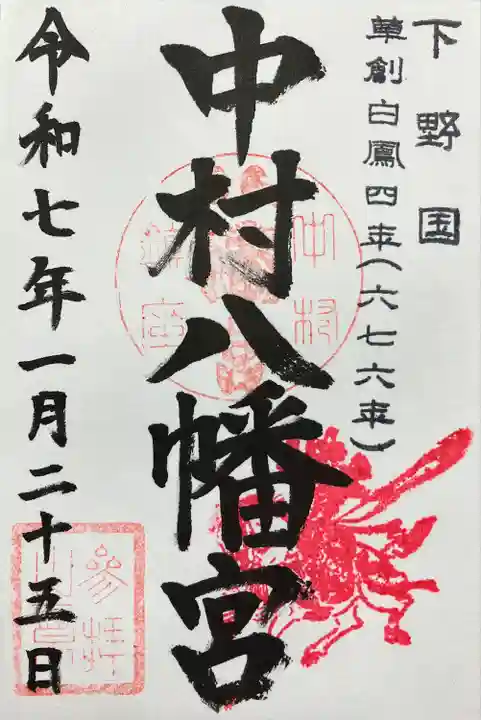 下野国
草創白鳳四年(六七六年)
中村八幡宮
令和七年一月二十五日